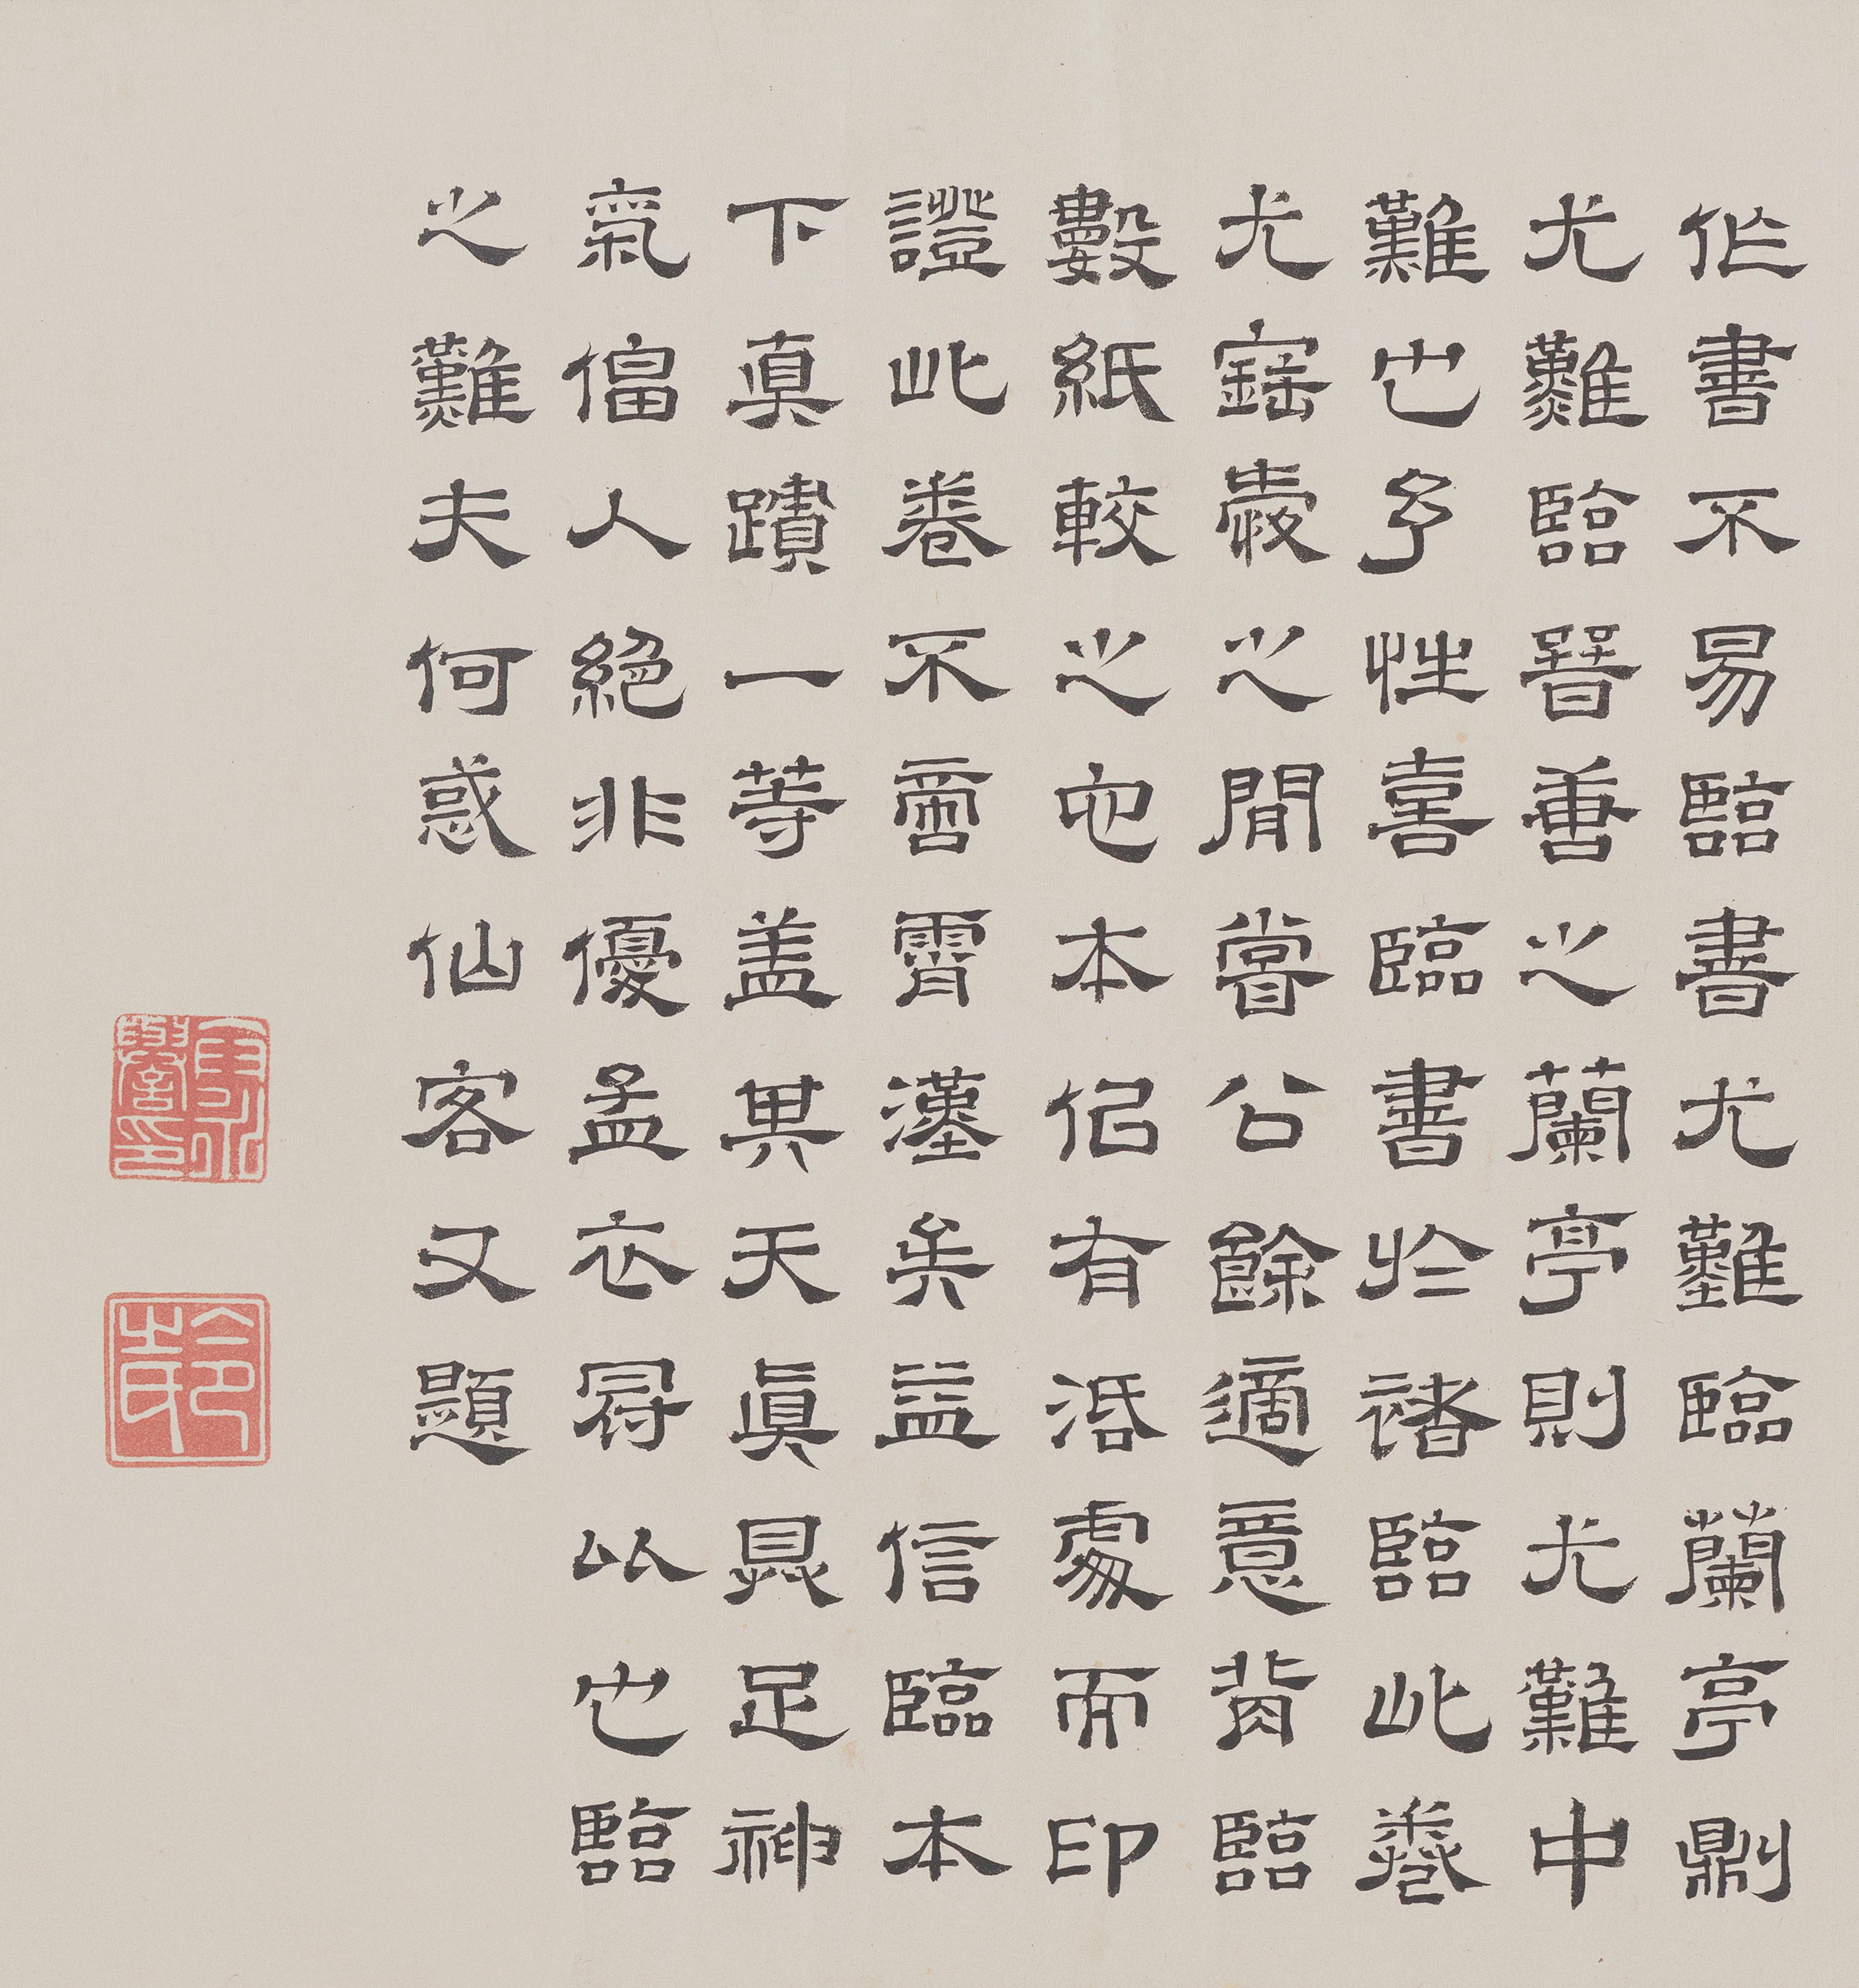 作書不易臨書尤難臨蘭亭則
尤難臨晉善之蘭亭則尤難中
難也予性喜臨書於褚臨此卷
尤寶愛之間嘗公餘適意背臨
數紙較之他本似有活處而印
證此卷不啻霄漢矣益信臨本
下真蹟一等盖其天真具足神
氣偪人絕非優孟衣冠以也臨
之難夫何惑仙客又題